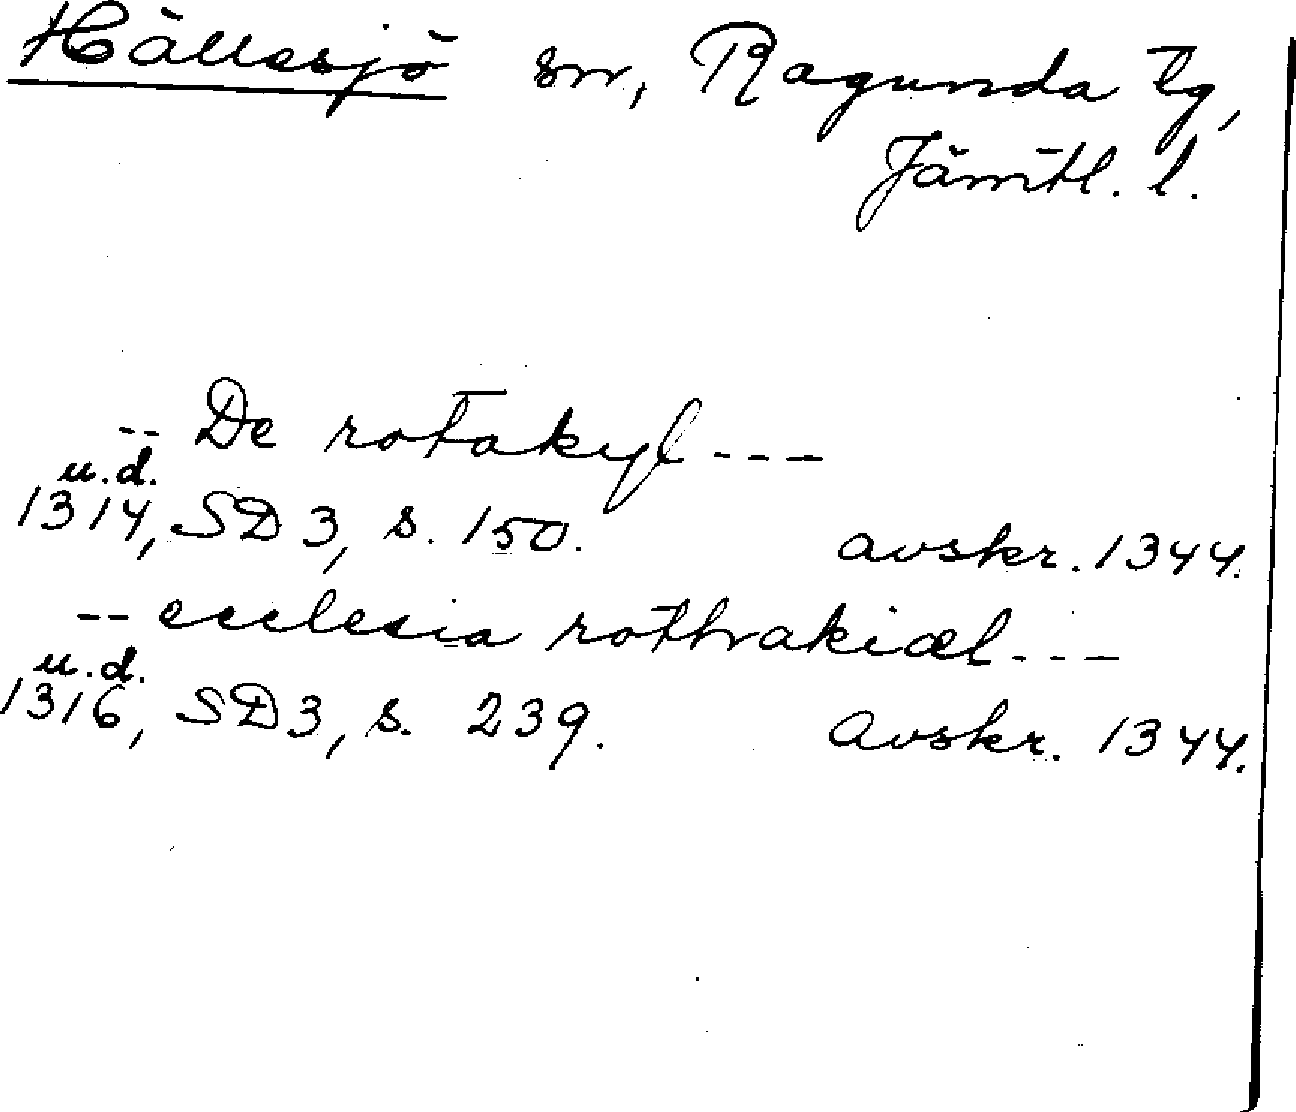 Hällesjö sn, Ragunda tg,
Jämtl. l.
-- De rotakyl ---
u.d.
1314, SD 3, s. 150. avskr. 1344.
-- ecclesia rothrakiæl ---
u.d.
1316, SD 3, s. 239. avskr. 1344.